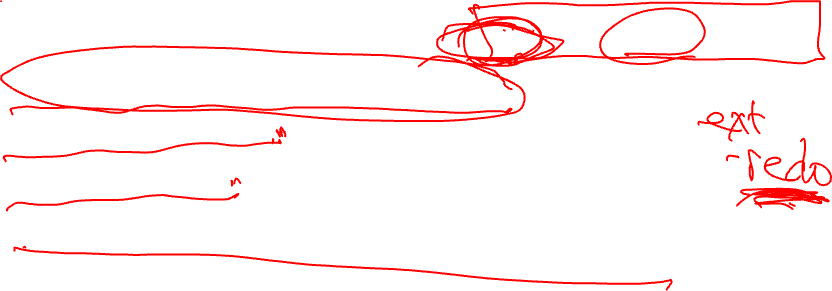 ext
-redo